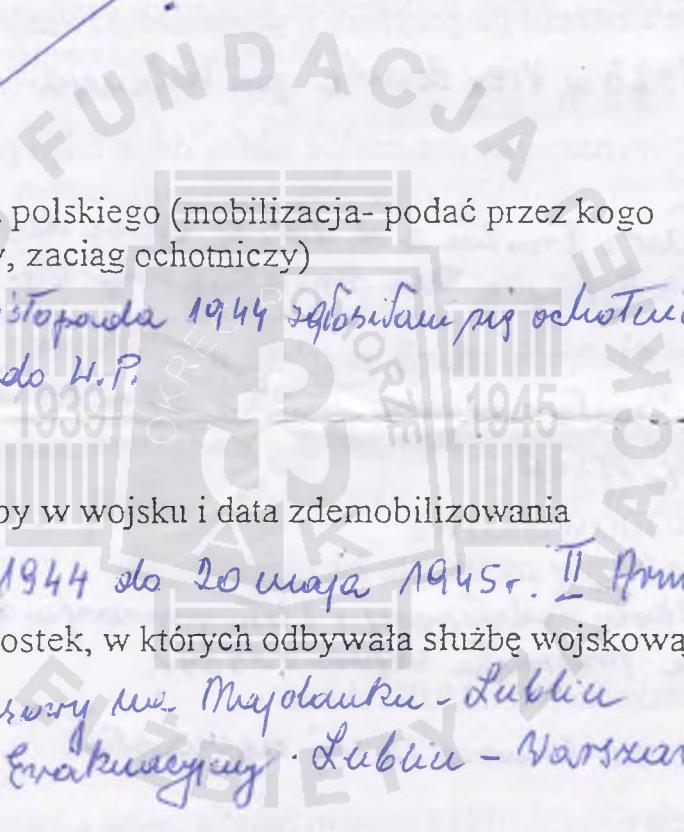 FUNDACJA GENERAŁ ELŻBIETY ZAWACKIEJ
polskiego (mobilizacja- podać przez kogo
, zaciąg ochotniczy)
istopada 1944 zgłosiłam się ochotni
do W.P.
OKRĘG POMORZE
1939 1945
AK
by w wojsku i data zdemobilizowania
1944 do 20 maja 1945r. II Arm
ostek, w których odbywała służbę wojskową
na Majdanku - Lublin
Ewakuacyjny - Lublin - Warszaw